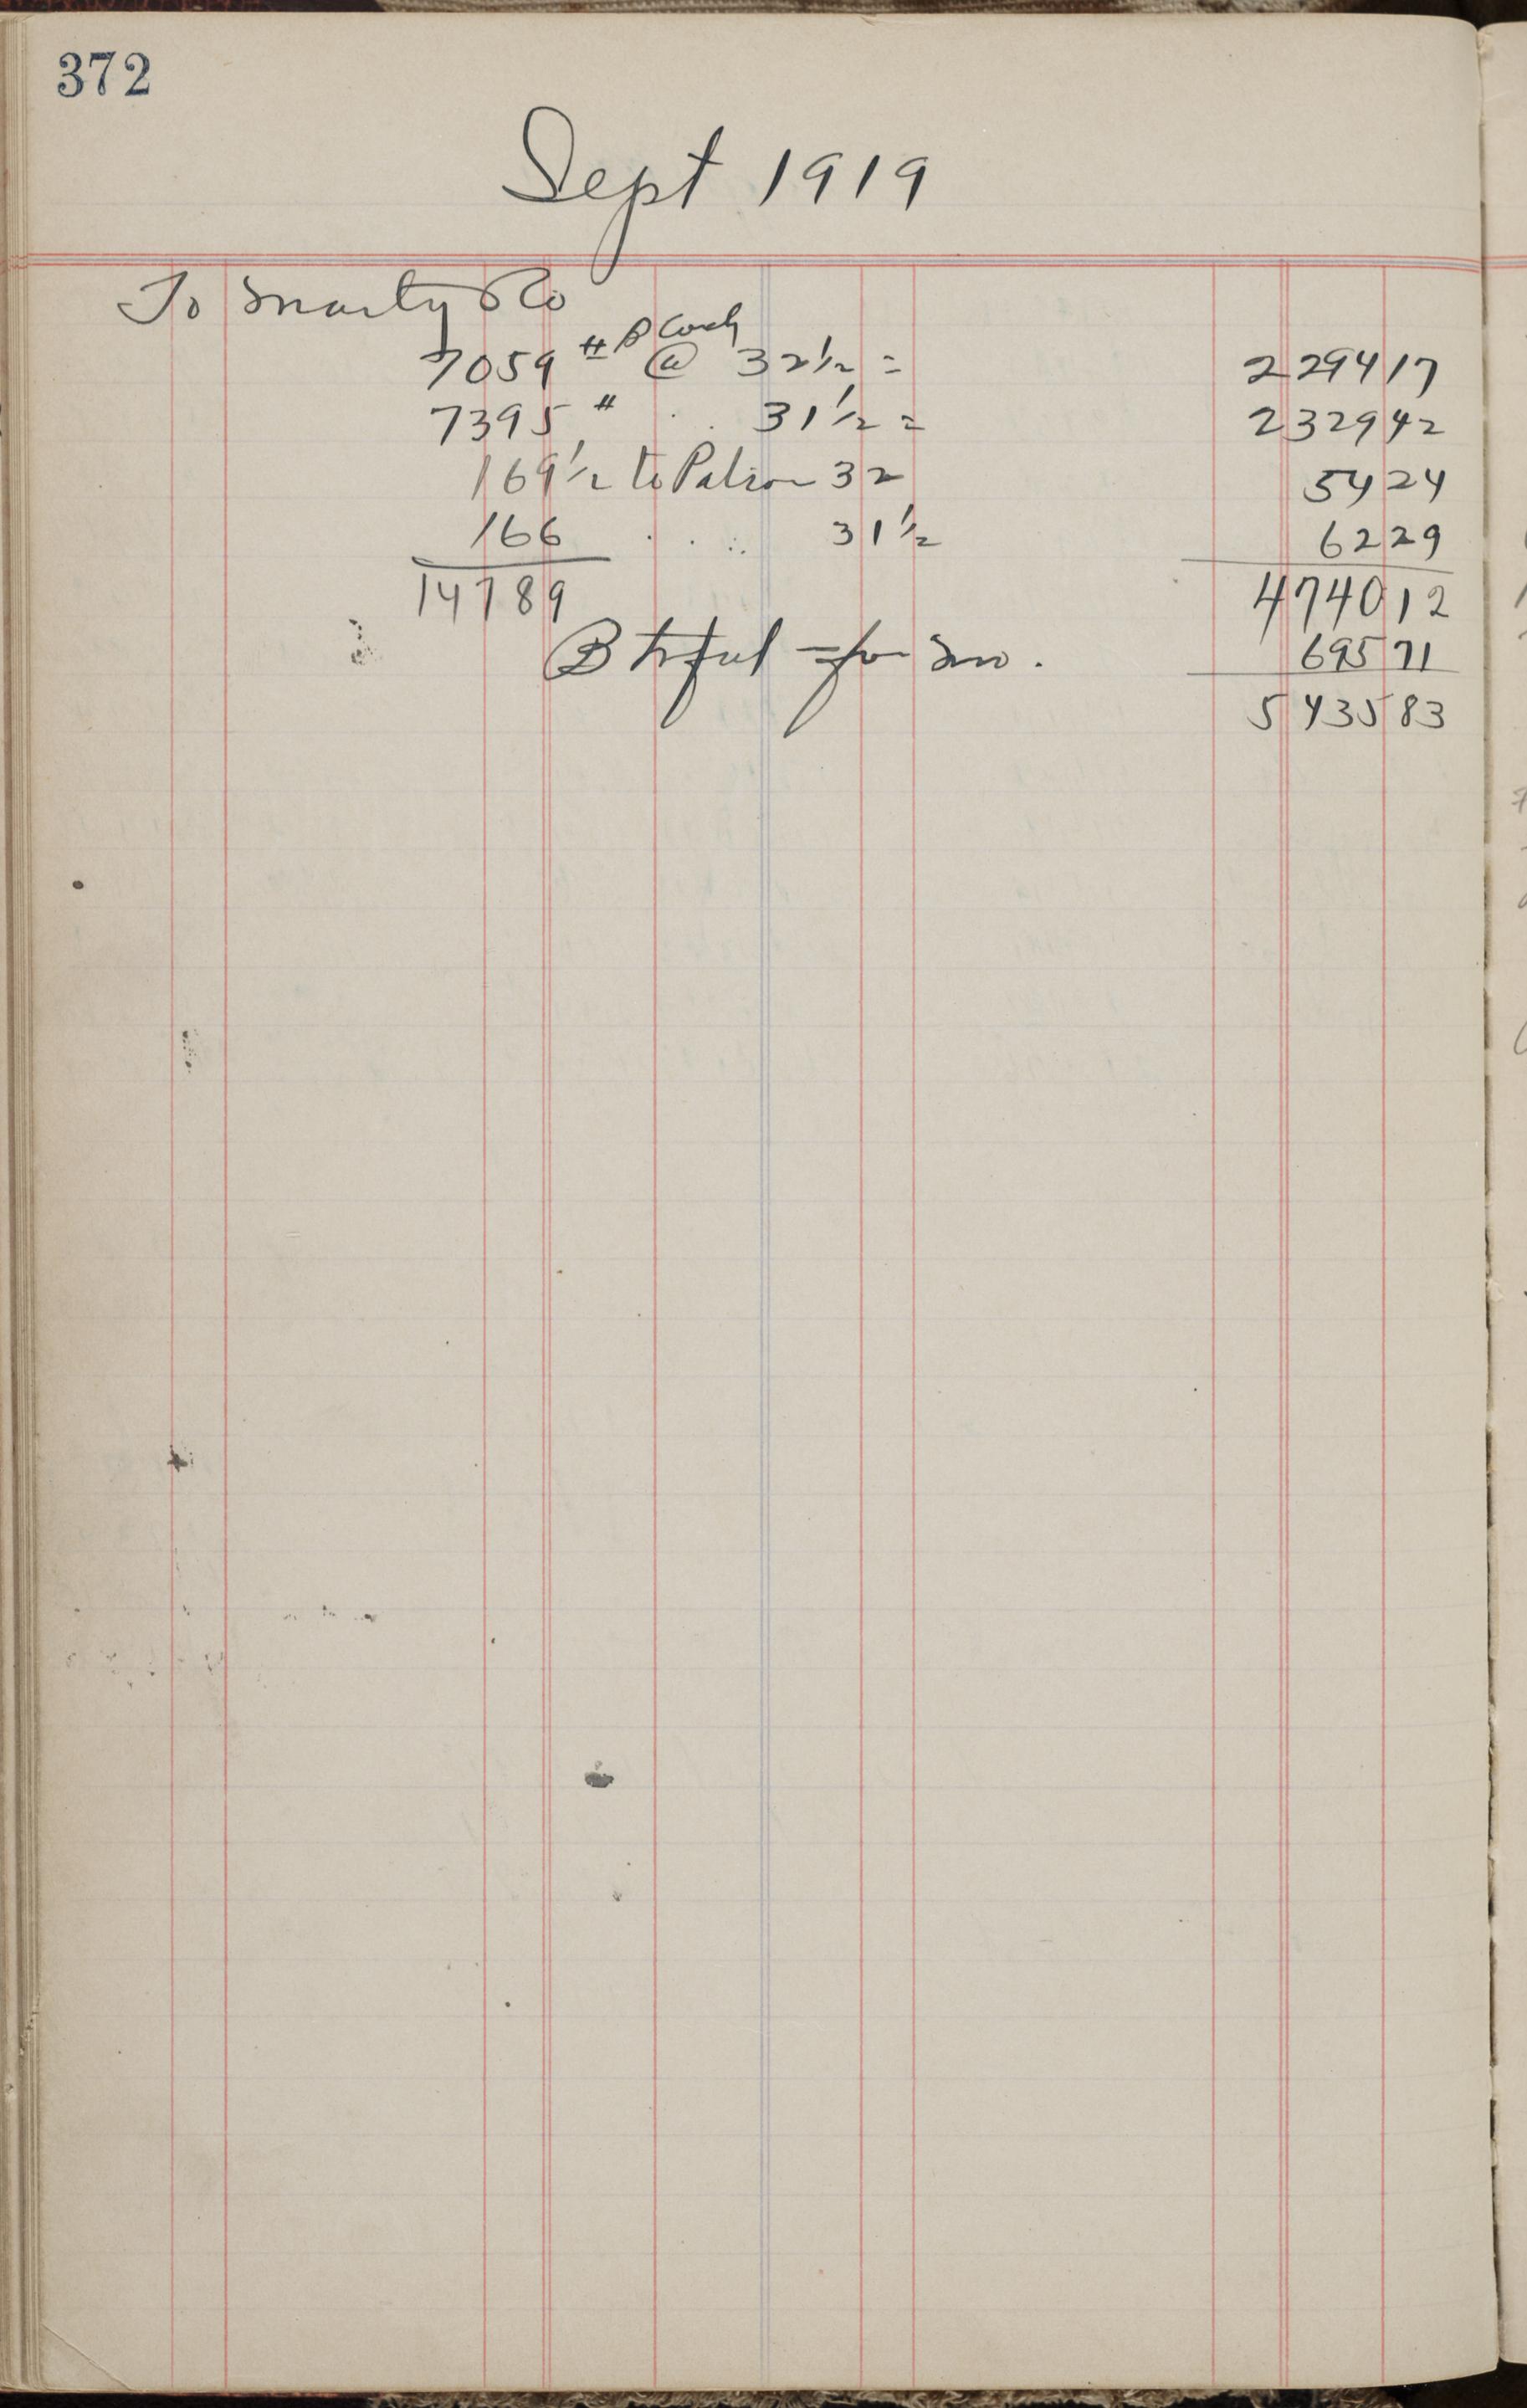 372
Sept 1919
To
7059 # @ 32 1/2 = 2294 17
7395 # . 31 1/2 = 2329 42
169 1/2 to Patron 32 54 24
166 . . 31 1/2 62 29
14789 4740 12
B for 695 71
5435 83